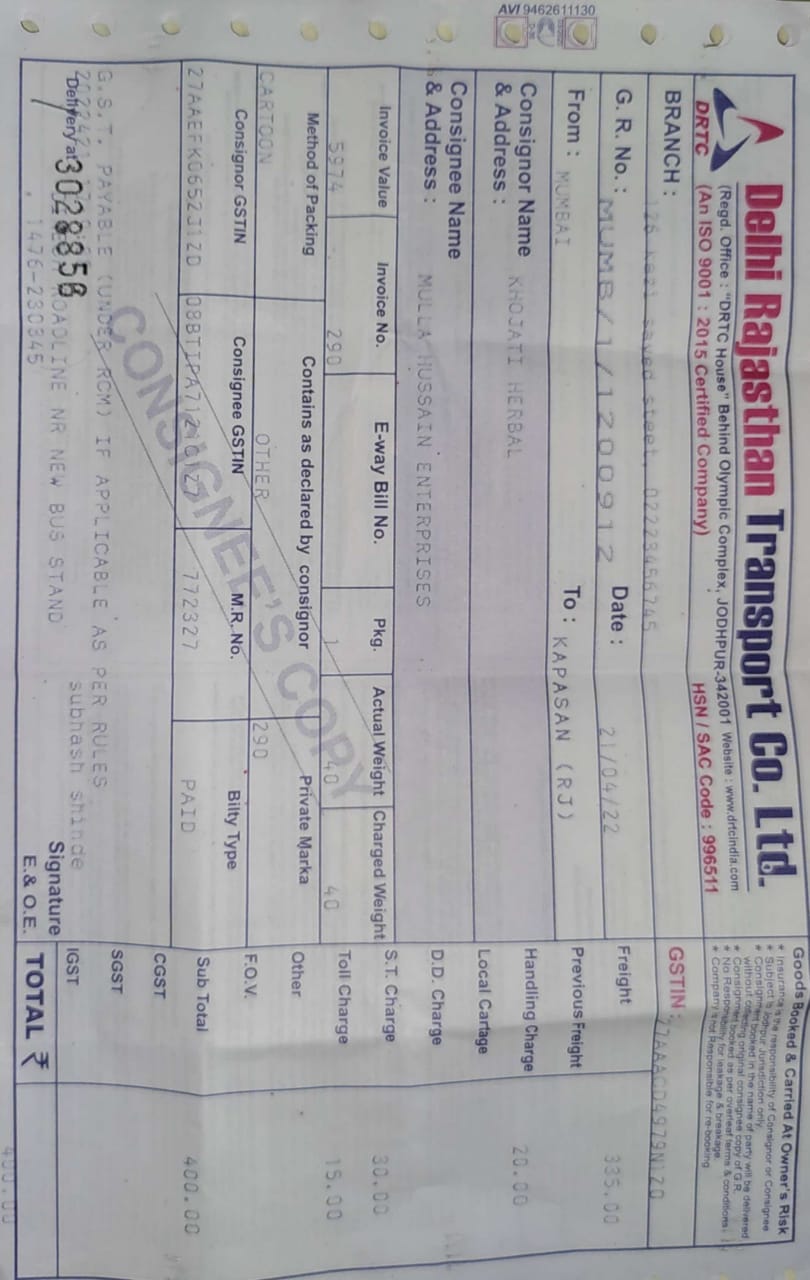 AVI 9462611130
Goods Booked & Carried At Owner's Risk
* Insurance is the responsibility of Consignor or Consignee
* Subject to Jodhpur Jurisdiction only.
* Consignment booked in the name of party will be delivered
without collecting original consignee copy of G.R.
* Consignment booked as per overleaf terms & conditions.
* No Responsibility for leakage & breakage.
* Company is not Responsible for re-booking
DRTC
Delhi Rajasthan Transport Co. Ltd.
(Regd. Office : "DRTC House" Behind Olympic Complex, JODHPUR-342001 Website : www.drtcindia.com
(An ISO 9001 : 2015 Certified Company) HSN / SAC Code : 996511
BRANCH : 126 kazi sayed steet, 02223456745
GSTIN : 27AAACD4979N1ZD
G. R. No. : MUMB/1/1200912 Date : 21/04/22
Freight 335.00
From : MUMBAI To : KAPASAN (RJ)
Previous Freight
Consignor Name & Address : KHOJATI HERBAL
Handling Charge 20.00
Local Cartage
Consignee Name & Address : MULLA HUSSAIN ENTERPRISES
D.D. Charge
Invoice Value Invoice No. E-way Bill No. Pkg. Actual Weight Charged Weight
S.T. Charge 30.00
5974 290 1 40 40
Toll Charge 15.00
Method of Packing Contains as declared by consignor Private Marka
Other
CARTOON OTHER 290
F.O.V.
Consignor GSTIN Consignee GSTIN M.R. No. Bilty Type
Sub Total 400.00
27AAEFK0652J1ZD 772327 PAID
CONSIGNEE'S COPY
CGST
G.S.T. PAYABLE (UNDER RCM) IF APPLICABLE AS PER RULES
SGST
subhash shinde
IGST
Delivery at 3028858 ROADLINE NR NEW BUS STAND
Signature
1476-230345
E. & O.E.
TOTAL ₹ 400.00